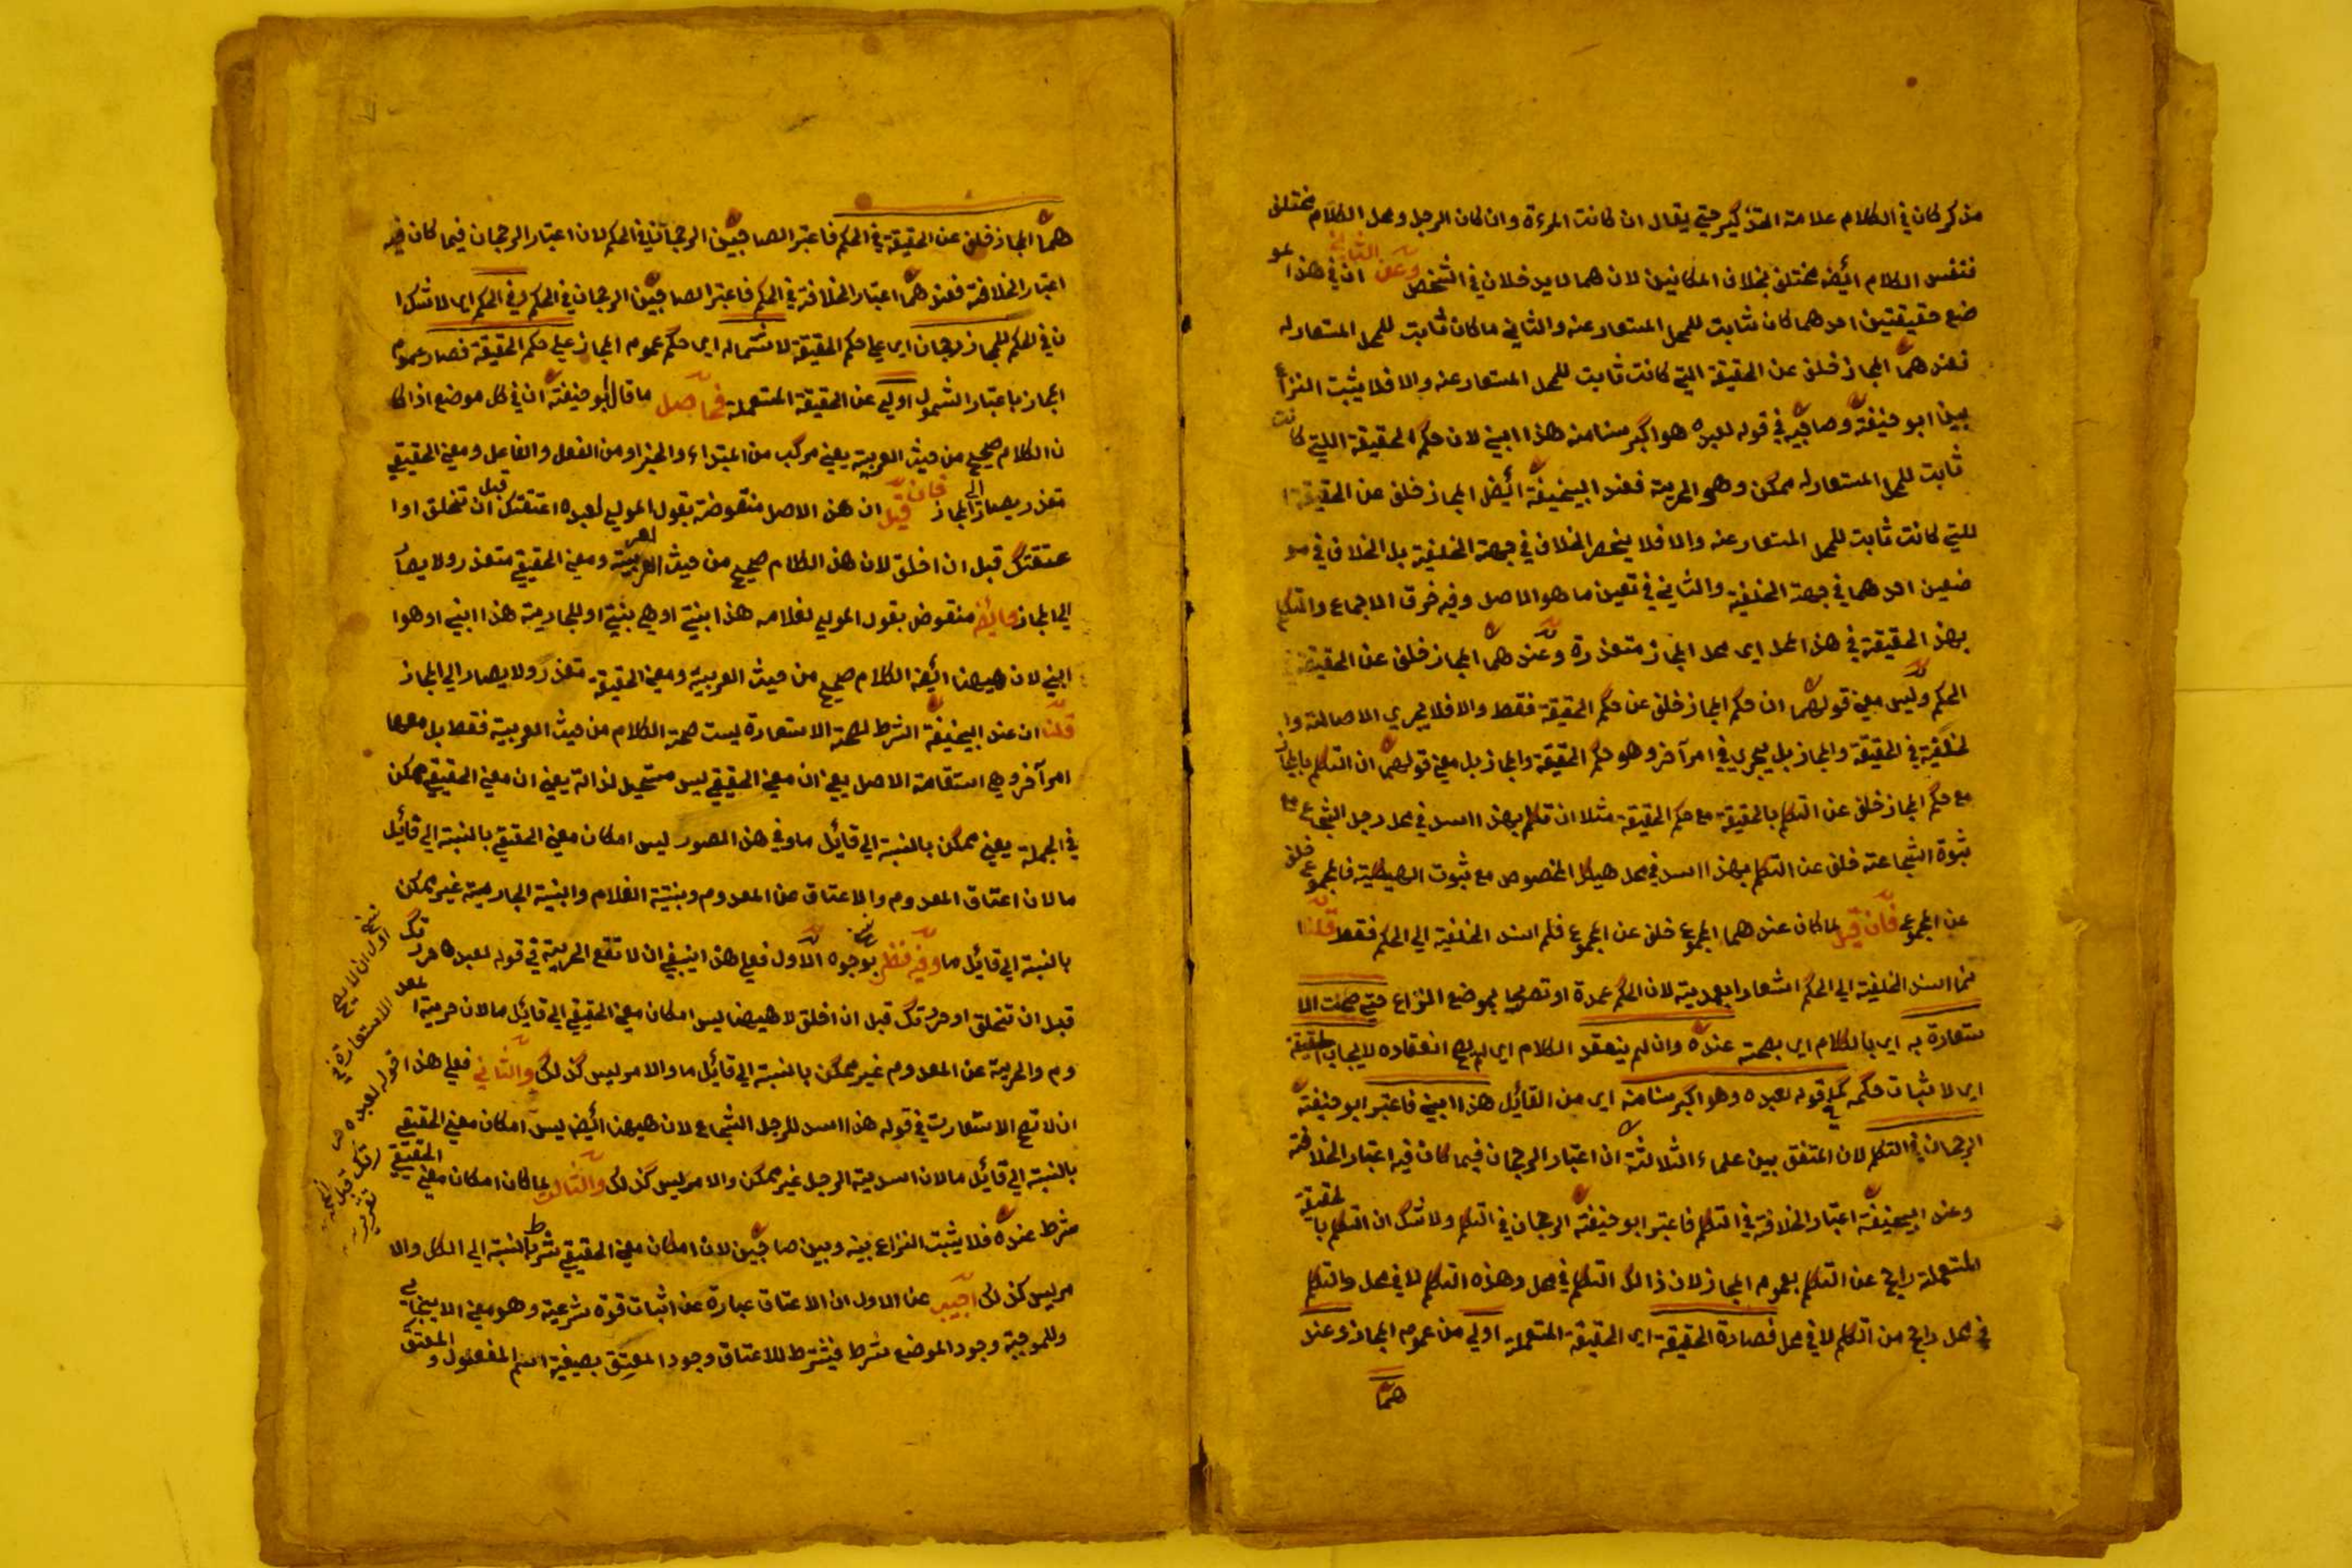 مذكر كان في الكلام علامة التذكير حتي يقال ان كانت المرءة وان كان الرجل ومحل الكلام مختلف
فنفس الكلام ايض مختلف بخلاف المكانين لان هما لا يدخلان في الشخص وعن الثاني ان في هذا المو
ضع حقيقتين احدهما كان ثابت للمحل المستعار عنه والثاني ما كان ثابت للمحل المستعار له
فعندهما المجاز خلف عن الحقيقة التي كانت ثابت للمحل المستعار عنه والا فلا يثبت النزاع
بين ابو حنيفة وصاحبيه في قوله لعبده هو اكبر سنا منه هذا ابني لان حكم الحقيقة التي كانت
ثابت للمحل المستعار له ممكن وهو الحرية فعند ابيحنيفة ايض المجاز خلف عن الحقيقة ا
للتي كانت ثابت للمحل المستعار عنه والا فلا ينحصر الخلاف في جهة الخلفية بل الخلاف في مو
ضعين احدهما في جهة الخلفية والثاني في تعين ما هو الاصل وفيه خرق الاجماع والتكلم
بهذ الحقيقة في هذا المحل اي محل المجاز متعذرة وعندهما المجاز خلف عن الحقيقة في
الحكم وليس معني قولهما ان حكم المجاز خلف عن حكم الحقيقة فقط والا فلا يجري الاصالة وا
لخلفية في الحقيقة والمجاز بل يجري في امر آخر وهو حكم الحقيقة والمجاز بل معني قولهما ان التكلم بالمجاز
مع حكم المجاز خلف عن التكلم بالحقيقة مع حكم الحقيقة مثلا ان تكلم بهذا اسد في محل رجل الشجاع مع
ثبوة الشجاعة خلف عن التكلم بهذا اسد في محل هيكل المخصوص مع ثبوت الهيكلية فالمجموع خلف
عن المجموع فان قيل لما كان عندهما المجموع خلف عن المجموع فلم اسند الخلفية الي الحكم فقط قلنا ا
نما اسند الخلفية الي الحكم اشعارا بعمدية لان الحكم عمدة او تصريحا لموضع النزاع حتي صحت الا
ستعارة به اي بالكلام اي بصحته عنده وان لم ينعقد الكلام اي لم يصح انعقاده لايجاب الحقيقة
اي لا ثبات حكمه كما في قوله لعبده وهو اكبر سنا منه اي من القائل هذا ابني فاعتبر ابو حنيفة
الرجحان في التكلم لان المتفق بين علماء الثلاثة ان اعتبار الرجحان فيما كان فيه اعتبار الخلافة
وعند ابيحنيفة اعتبار الخلافة في التكلم فاعتبر ابو حنيفة الرجحان في التكلم ولا شك ان التكلم بالحقيقة
المستعملة راجح عن التكلم بعموم المجاز لان ذالك التكلم في محل وهذه التكلم لا في محل والتكلم
في محل راجح من التكلم لا في محل فصارة الحقيقة اي الحقيقة المستعملة اولي من عموم المجاز وعند
هما
هما المجاز خلف عن الحقيقة في الحكم فاعتبر الصاحبين الرجحان في الحكم لان اعتبار الرجحان فيما كان فيه
اعتبار الخلافة فعندهما اعتبار الخلافة في الحكم فاعتبر الصاحبين الرجحان في الحكم وفي الحكم اي لا شك ا
ن في الحكم للمجاز رجحان اي علي حكم الحقيقة لاشتماله اي حكم عموم المجاز علي حكم الحقيقة فصار عموم
المجاز باعتبار الشمول اولي عن الحقيقة المستعملة فحاصل ما قال ابو حنيفة ان في كل موضع اذا كا
ن الكلام صحيح من حيث العربية يعني مركب من المبتداء والخبر او من الفعل والفاعل ومعني الحقيقي
متعذر يصار الي المجاز فان قيل ان هذ الاصل منقوضة بقول المولي لعبده اعتقتك قبل ان تخلق او ا
عتقتك قبل ان اخلق لان هذ الكلام صحيح من حيث العربية ومعني الحقيقي متعذر ولا يصار
الي المجاز وايض منقوض بقول المولي لغلامه هذا بنتي او هي بنتي او للجارية هذا ابني او هوا
ابني لان ههنا ايض الكلام صحيح من حيث العربية ومعني الحقيقة تعذر ولا يصار الي المجاز
قلنا ان عند ابيحنيفة الشرط لصحة الاستعارة ليست صحة الكلام من حيث العربية فقط بل معها
امر آخر وهي استقامة الاصل يعني ان معني الحقيقي ليس مستحيل لذاته يعني ان معني الحقيقي ممكن
في الجملة يعني ممكن بالنسبة الي قائل ما وفي هذ الصور ليس امكان معني الحقيقي بالنسبة الي قائل
ما لان اعتاق المعدوم والاعتاق عن المعدوم وبنتية الغلام وابنية الجارية غير ممكن
بالنسبة الي قائل ما وفيه نظر بوجوه الاول فعلي هذ اينبغي ان لا تقع الحرية في قوله لعبده حررتك
قبل ان تخلق او حررتك قبل ان اخلق لا ههنا ليس امكان معني الحقيقي الي قائل ما لان حرية ا
وم والحرية عن المعدوم غير ممكن بالنسبة الي قائل ما والامر ليس كذلك والثاني فعلي هذا
ان لا تصح الاستعارت في قوله هذ اسد للرجل الشجاع لان ههنا ايض ليس امكان معني الحقيقي
بالنسبة الي قائل ما لان اسدية الرجل غير ممكن والامر ليس كذلك والثالث لما كان امكان معني الحقيقي
شرط عنده فلا يثبت النزاع بينه وبين صاحبين لان امكان معني الحقيقي شرط بالنسبة الي الكل والا
مر ليس كذلك اجيب عن الاول ان الاعتاق عبارة عن اثبات قوة شرعية وهو معني الايجابي
وللموجبة وجود الموضع شرط فيشترط للاعتاق وجود المعتق بصيغة اسم المفعول والمعتق